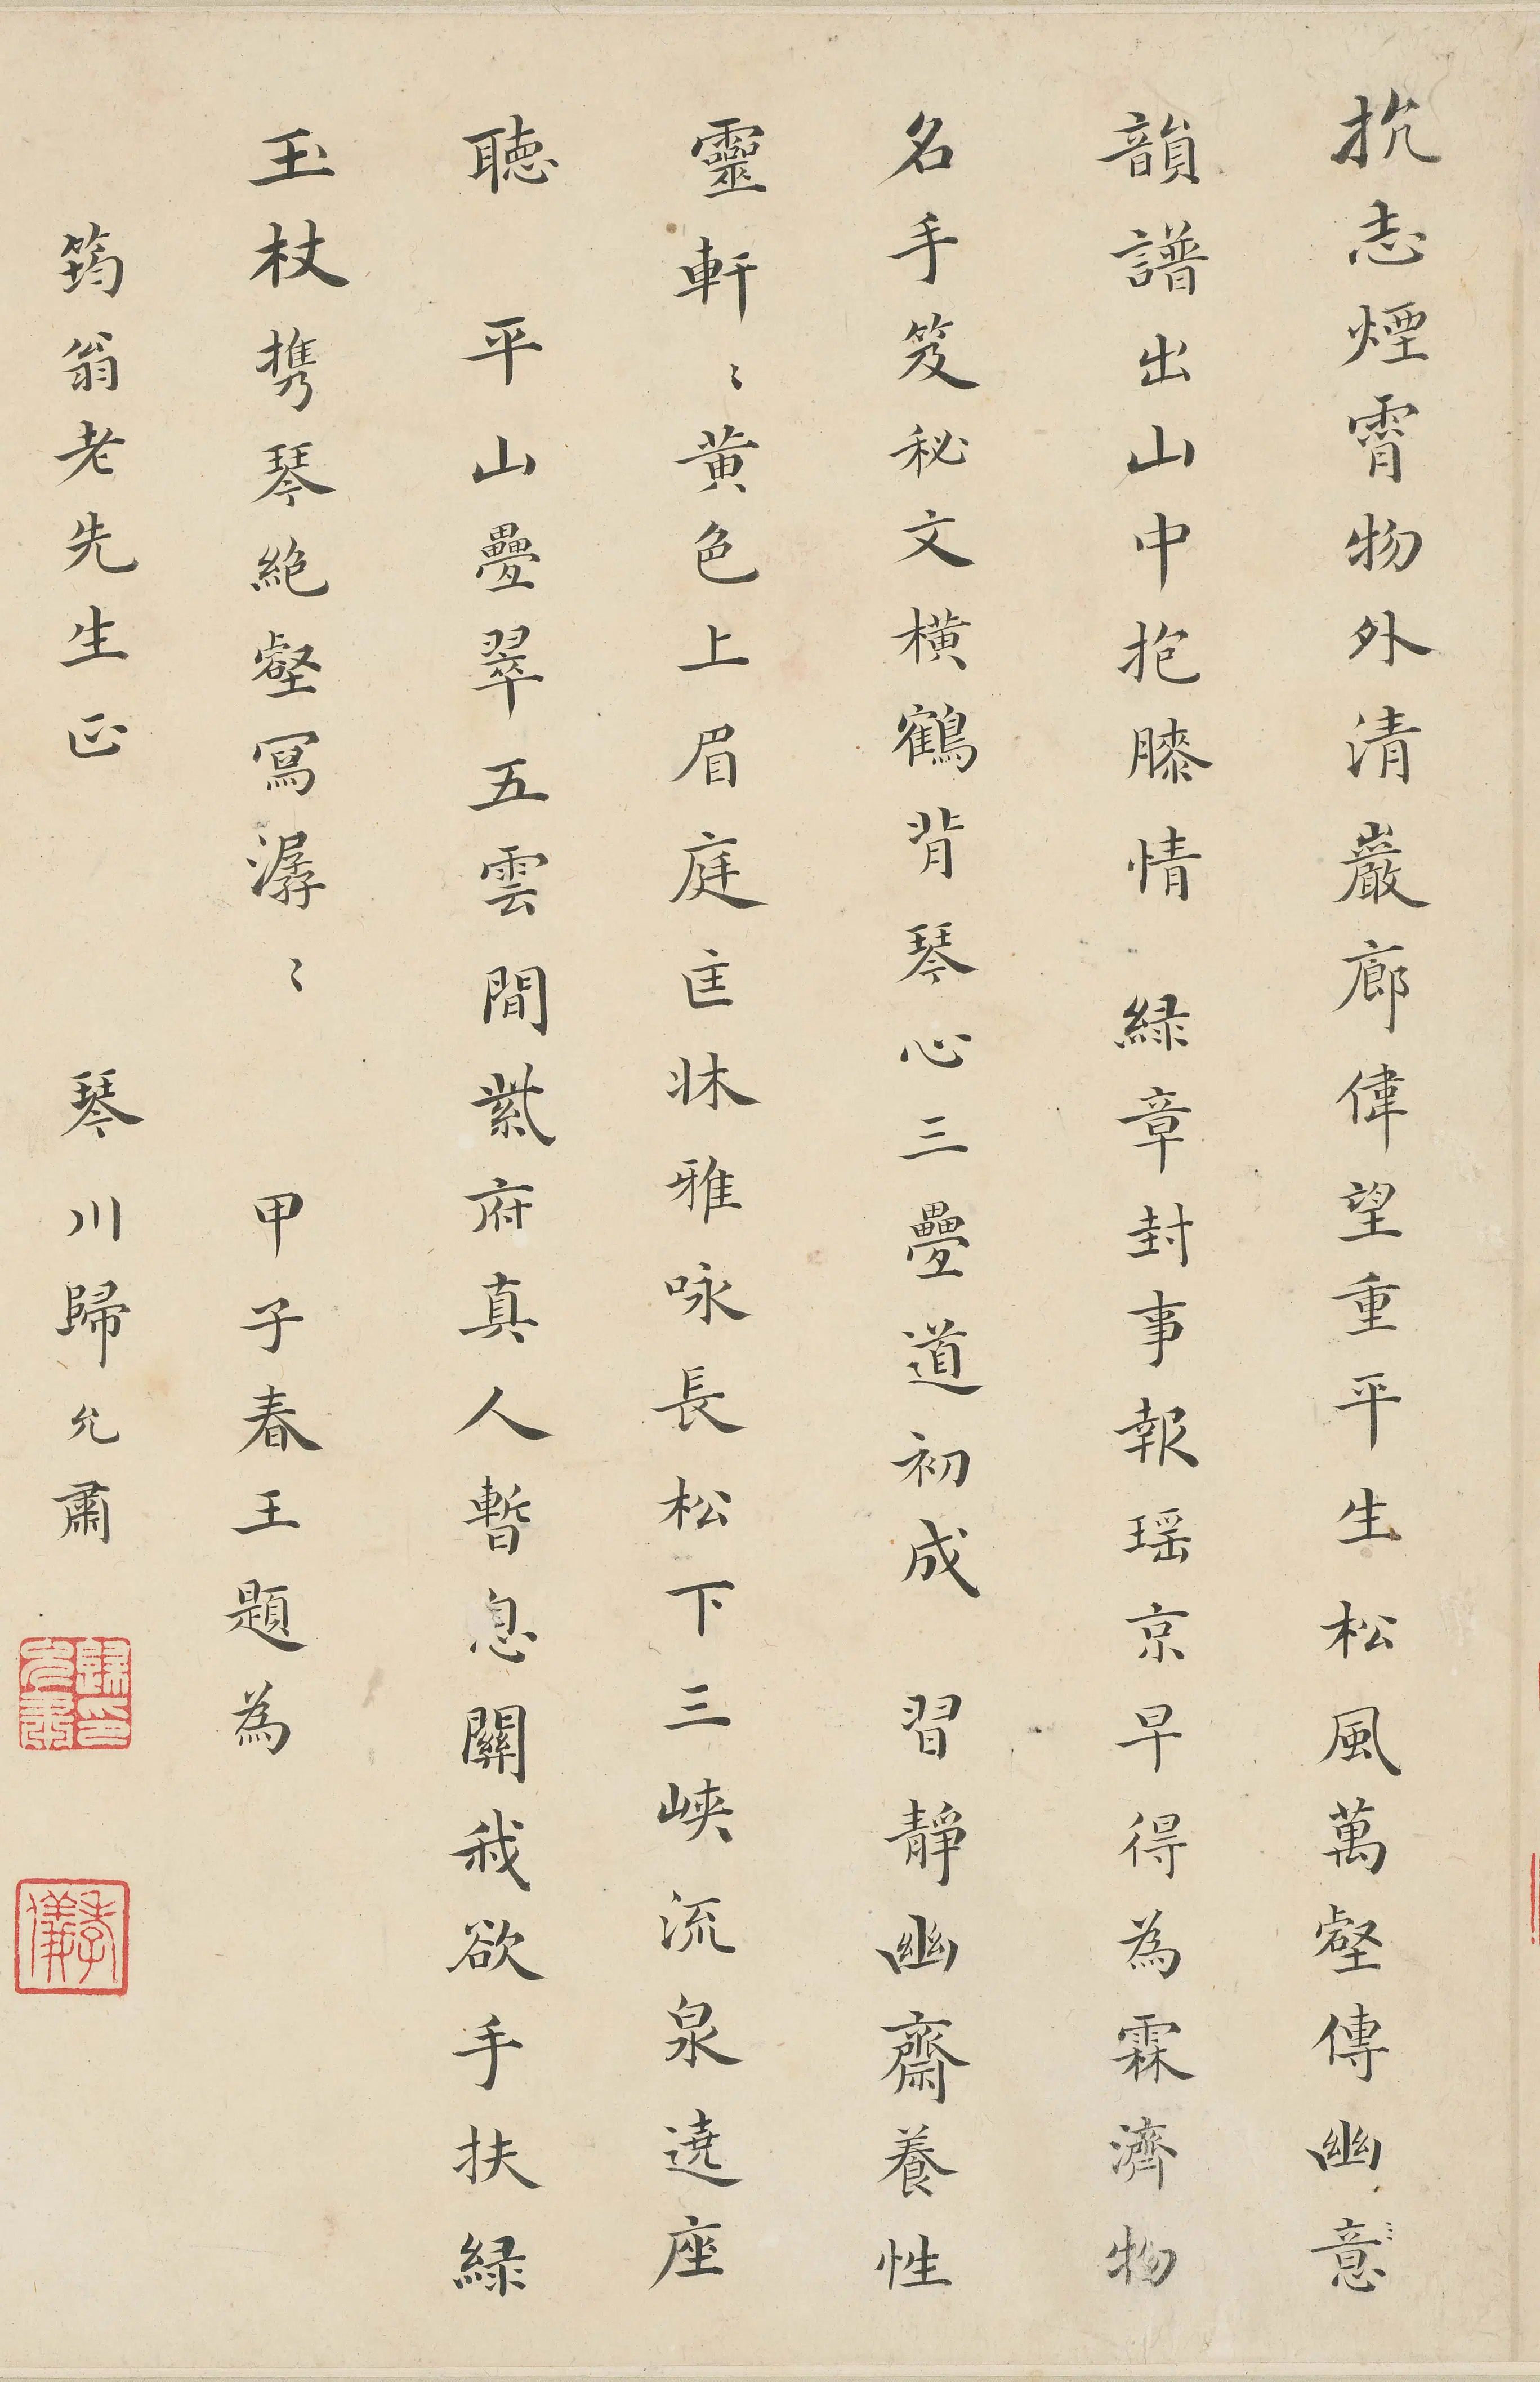 抗志煙霄物外清巖廊偉望重平生松風萬壑傳幽意
韻譜出山中抱膝情　綠章封事報瑶京早得為霖濟物
名手笈秘文橫鶴背琴心三疊道初成　習靜幽齋養性
靈軒〻黃色上眉庭匡牀雅咏長松下三峽流泉遶座
聽　平山疊翠五雲間紫府真人暫息關我欲手扶綠
玉杖携琴絕壑寫潺〻　甲子春王題為
筠翁老先生正　琴川歸允肅
歸允肅印
孝儀